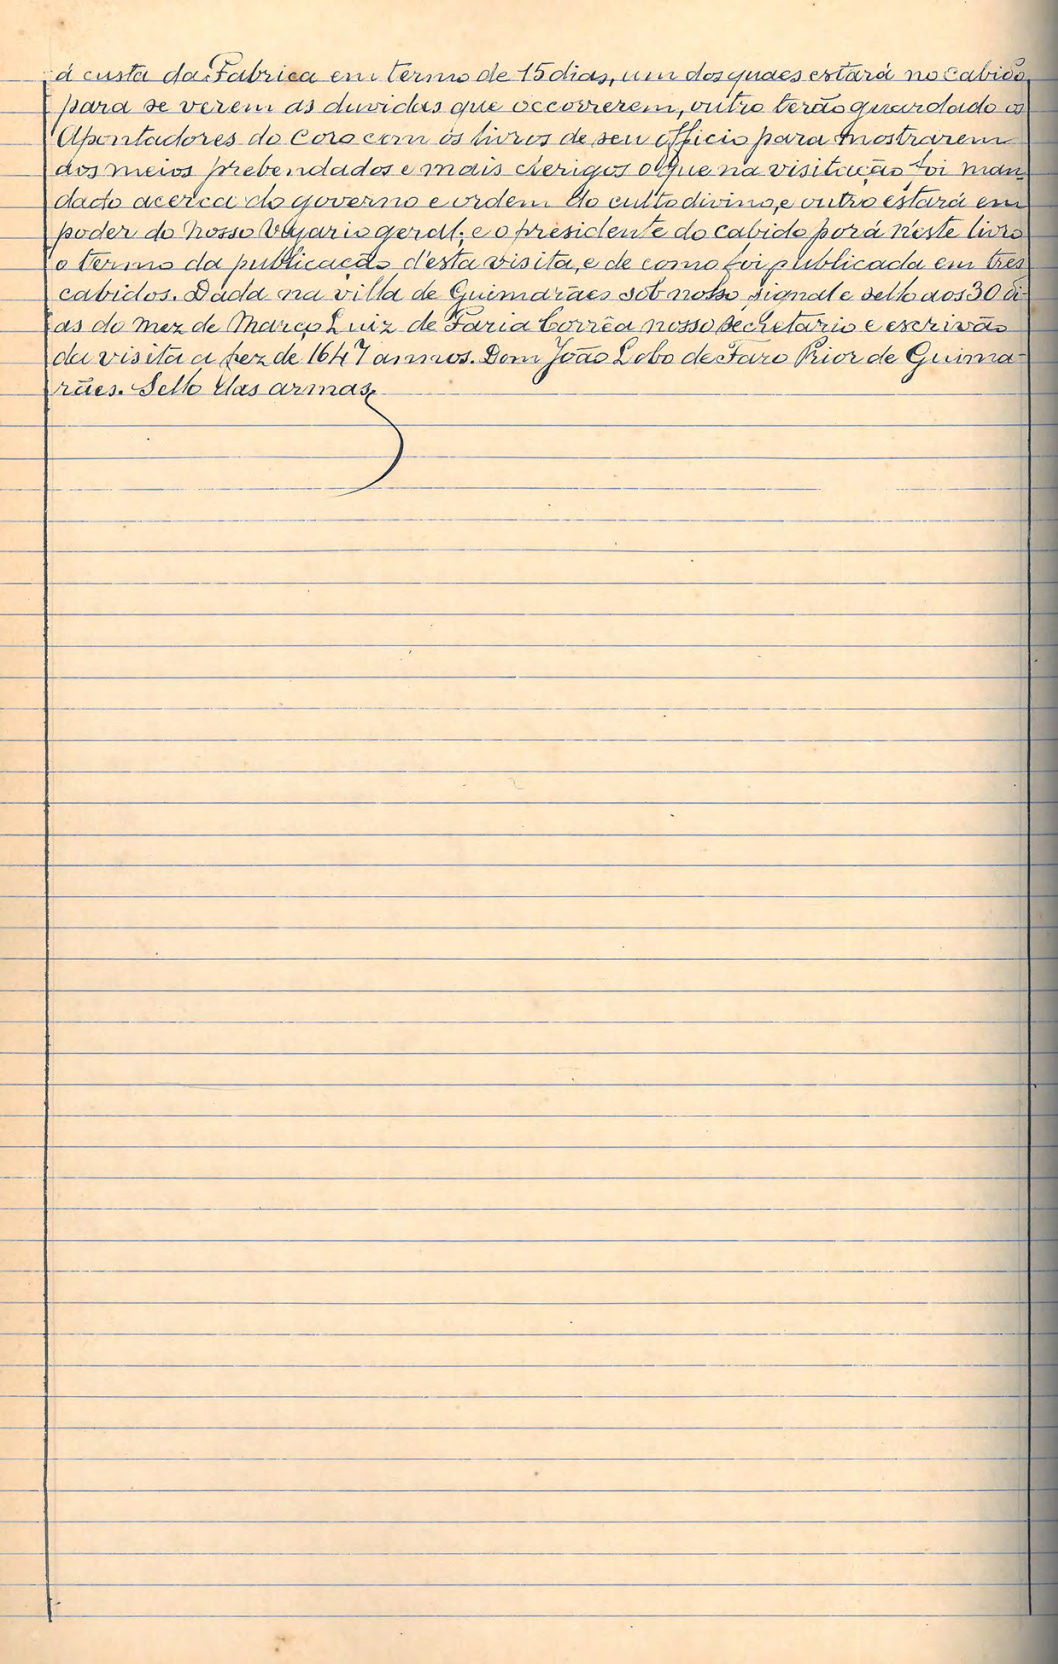 á custa da Fabrica em termo de 15 dias, um dos quaes estará no cabido
para se verem as duvidas que occorrerem, outro terão guardado os
Apontadores do Coro com os livros de seu officio para mostrarem
aos meios prebendados e mais clerigos o que na visitação foi man-
dado acerca do governo e ordem do culto divino, e outro estará em
poder do nosso Vigario geral; e o presidente do cabido porá n'este livro
o termo da publicação d'esta visita, e de como foi publicada em tres
cabidos. Dada na villa de Guimarães sob nosso signal e sello aos 30 di-
as do mez de Março Luiz de Faria Corrêa nosso secretario e escrivão
da visita a fez de 1647 annos. Dom João Lobo de Faro Prior de Guima-
rães. Sello das armas